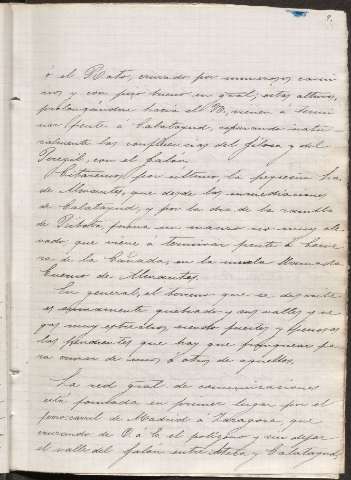 9.
ó el Rato, cruzado por numerosos cami
nos y con piso bueno en gral; estas alturas,
prolongándose hacia el N, vienen á termi
nar frente á Calatayud, separando natu-
ralmente las confluencias del Jiloca y del
Peregil, con el Jalon.
Citaremos, por ultimo, la pequeña
de Morantes, que desde las inmediaciones
de Calatayud, y por la dra de la rambla
de Ribota, forma un macizo no muy ele
vado, que viene á terminar frente á
de la Cañada, en la muela llamada
Cuerno de
En general, el terreno que se describe
es sumamente quebrado y sus valles y ve
gas muy estrechos, siendo fuertes y penosas
las pendientes que hay que franquear pa
ra pasar de unos á otros de aquellos.
La red gral de comunicaciones
está formada en primer lugar por el
ferro-carril de Madrid á Zaragoza, que
cruzando de O. á E. el poligono y sin dejar
el valle del Jalon entre Ateca y Calatayud,